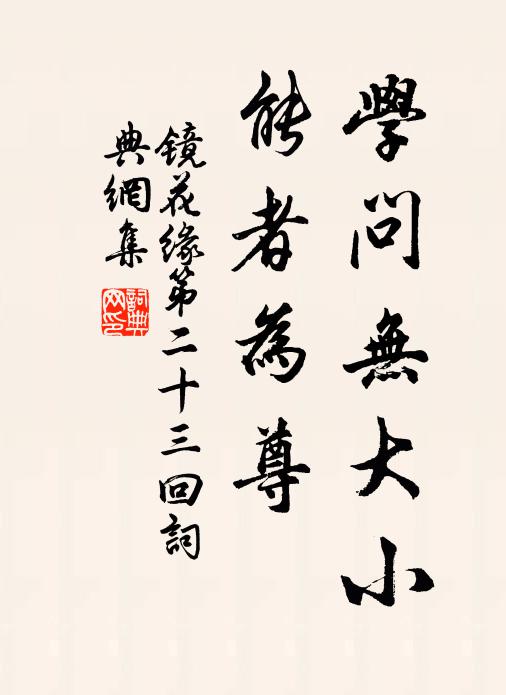 學問無大小
能者為尊
镜花缘第二十三回詞
典網集
詞典網印